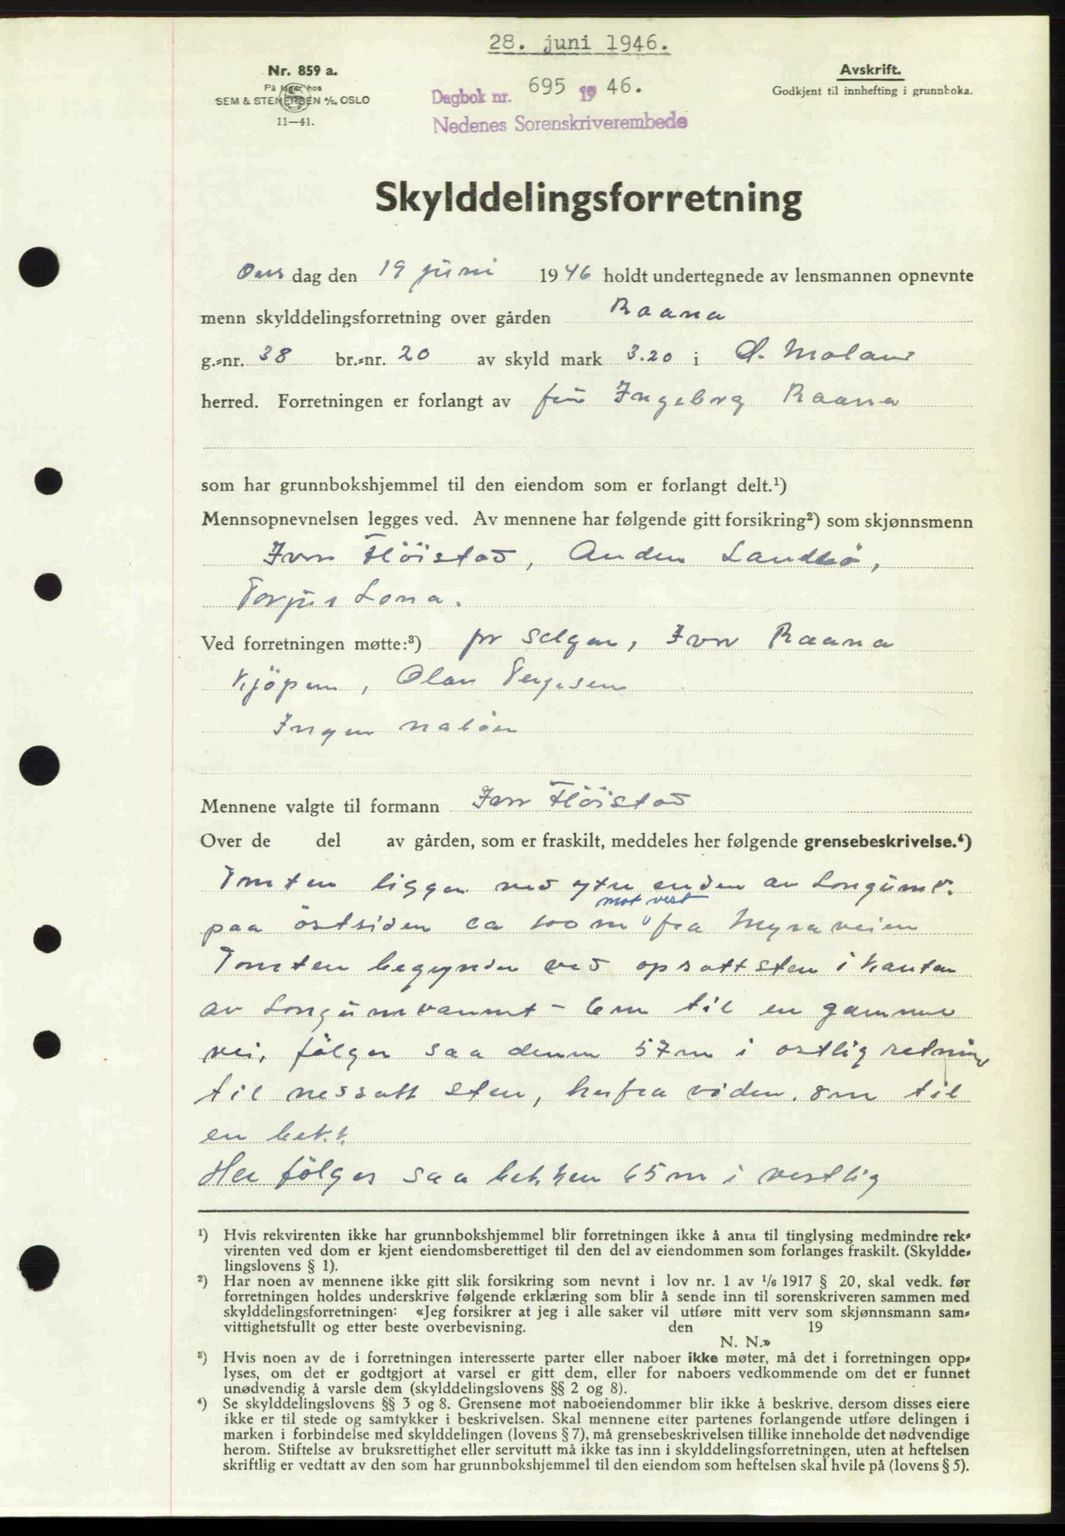 28. juni 1946.
Nr. 859 a.
På lager hos
SEM & STENERSEN A/S, OSLO
11—41.
Dagbok nr. 695 19 46.
Nedenes Sorenskriverembede
Avskrift.
Godkjent til innhefting i grunnboka.
Skylddelingsforretning
Ons dag den 19 juni 1946 holdt undertegnede av lensmannen opnevnte
menn skylddelingsforretning over gården Raana
g.-nr. 38 br.-nr. 20 av skyld mark 3.20 i Ø. Moland
herred. Forretningen er forlangt av fru Ingeborg Raana
som har grunnbokshjemmel til den eiendom som er forlangt delt.¹)
Mennsopnevnelsen legges ved. Av mennene har følgende gitt forsikring²) som skjønnsmenn
Ivar Flöistad, Anders Landbö,
Torjus Lona.
Ved forretningen møtte:³) for selger, Ivar Raana
Kjöpern, Olav Terjesen
Ingen naboer
Mennene valgte til formann Ivar Flöistad
Over de del av gården, som er fraskilt, meddeles her følgende grensebeskrivelse.⁴)
Tomten ligger ved ytre enden av Longumv.
paa östsiden ca 100 m mot vest fra Myraveien
Tomten begynder ved opsatt sten i kanten
av Longumvannet - 6 m til en gammel
vei, fölger saa denne 57 m i ostlig retning
til nessatt sten, herfra viden. 8 m til
en bekk
Her fölges saa bekken 65 m i vestlig
¹) Hvis rekvirenten ikke har grunnbokshjemmel blir forretningen ikke å anta til tinglysing medmindre rek-
virenten ved dom er kjent eiendomsberettiget til den del av eiendommen som forlanges fraskilt. (Skyldde-
lingslovens § 1).
²) Har noen av mennene ikke gitt slik forsikring som nevnt i lov nr. 1 av 1/6 1917 § 20, skal vedk. før
forretningen holdes underskrive følgende erklæring som blir å sende inn til sorenskriveren sammen med
skylddelingsforretningen: «Jeg forsikrer at jeg i alle saker vil utføre mitt verv som skjønnsmann sam-
vittighetsfullt og etter beste overbevisning. den 19
N. N.»
³) Hvis noen av de i forretningen interesserte parter eller naboer ikke møter, må det i forretningen opp-
lyses, om det er godtgjort at varsel er gitt dem, eller for naboers vedkommende om det er funnet
unødvendig å varsle dem (skylddelingslovens §§ 2 og 8).
⁴) Se skylddelingslovens §§ 3 og 8. Grensene mot naboeiendommer blir ikke å beskrive, dersom disses eiere
ikke er til stede og samtykker i beskrivelsen. Skal mennene etter partenes forlangende utføre delingen i
marken i forbindelse med skylddelingen (lovens § 7), må grensebeskrivelsen tillike inneholde det nødvendige
herom. Stiftelse av bruksrettighet eller servitutt må ikke tas inn i skylddelingsforretningen, uten at heftelsen
skriftlig er vedtatt av den som har grunnbokshjemmel til den eiendom som heftelsen skal hvile på (lovens § 5).